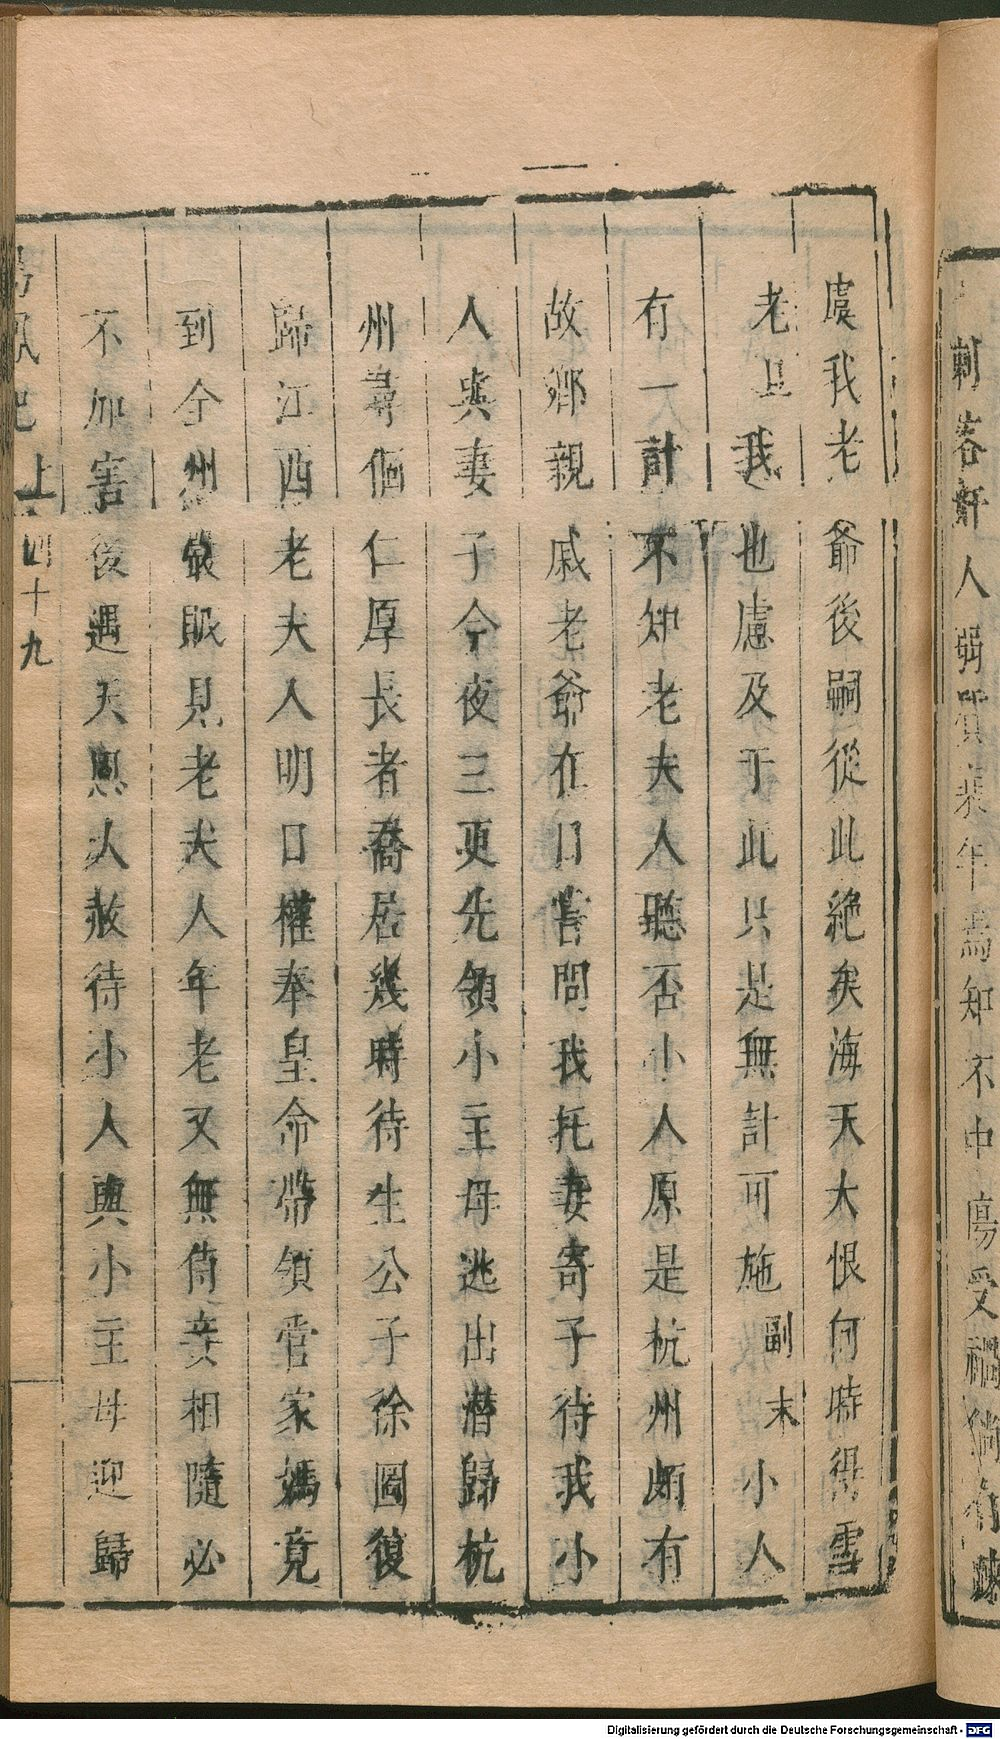 刺客奸人弱質衰年焉知不中傷受禍倘有踈
虞我老爺後嗣從此絶矣海天大恨何時得雪
老旦我也慮及于此只是無計可施副末小人
有一計不知老夫人聽否小人原是杭州頗有
故鄉親戚老爺在日嘗問我托妻寄子待我小
人與妻子今夜三更先領小主母逃出潜歸杭
州尋個仁厚長者喬居幾時待生公子徐圖復
歸江西老夫人明日權奉皇命帶領管家媽竟
到全州嚴賊見老夫人年老又無侍妾相隨必
不加害後遇天恩大赦待小人與小主母迎歸
上 四十九
Digitalisierung gefördert durch die Deutsche Forschungsgemeinschaft - DFG